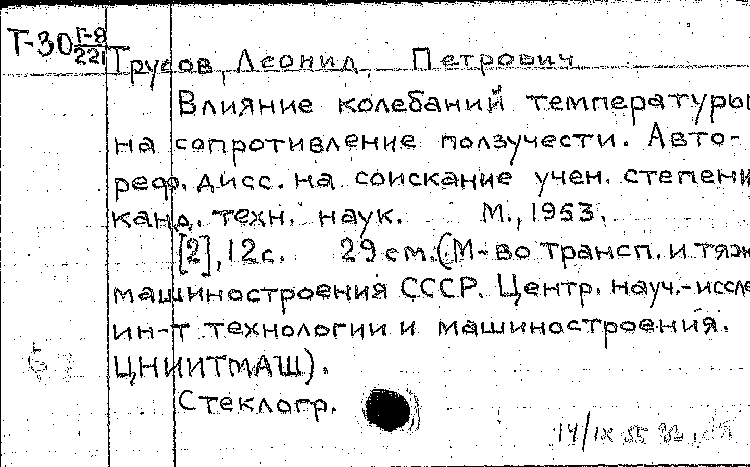 Т-30 Г-8/221 Трусов, Леонид Петрович
Влияние колебаний температуры
на сопротивление ползучести. Авто-
реф. дисс. на соискание учен. степени
канд. техн. наук. М., 1953.
[2], 12 с. 29 см. (М-во трансп. и тяж
машиностроения СССР. Центр. науч.-иссле
ин-т технологии и машиностроения.
ЦНИИТМАШ).
Стеклогр.
14/IX 55